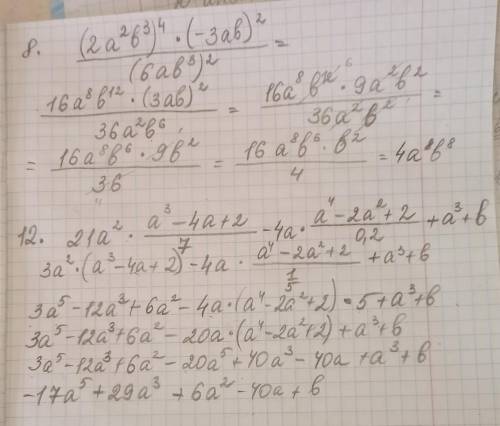 8. (2a²b³)⁴ · (-3ab)² / (6ab³)² =
16a⁸b¹² · (3ab)² / 36a²b⁶ = 16a⁸b¹²⁶ · 9a²b² / 36a²b² =
= 16a⁸b⁶ · 9b² / 36 = 16a⁸b⁶ · b² / 4 = 4a⁸b⁸
12. 21a² · a³ - 4a + 2 / 7 - 4a · a⁴ - 2a² + 2 / 0,2 + a³ + b
3a² · (a³ - 4a + 2) - 4a · a⁴ - 2a² + 2 / 1/5 + a³ + b
3a⁵ - 12a³ + 6a² - 4a · (a⁴ - 2a² + 2) · 5 + a³ + b
3a⁵ - 12a³ + 6a² - 20a · (a⁴ - 2a² + 2) + a³ + b
3a⁵ - 12a³ + 6a² - 20a⁵ + 40a³ - 40a + a³ + b
-17a⁵ + 29a³ + 6a² - 40a + b